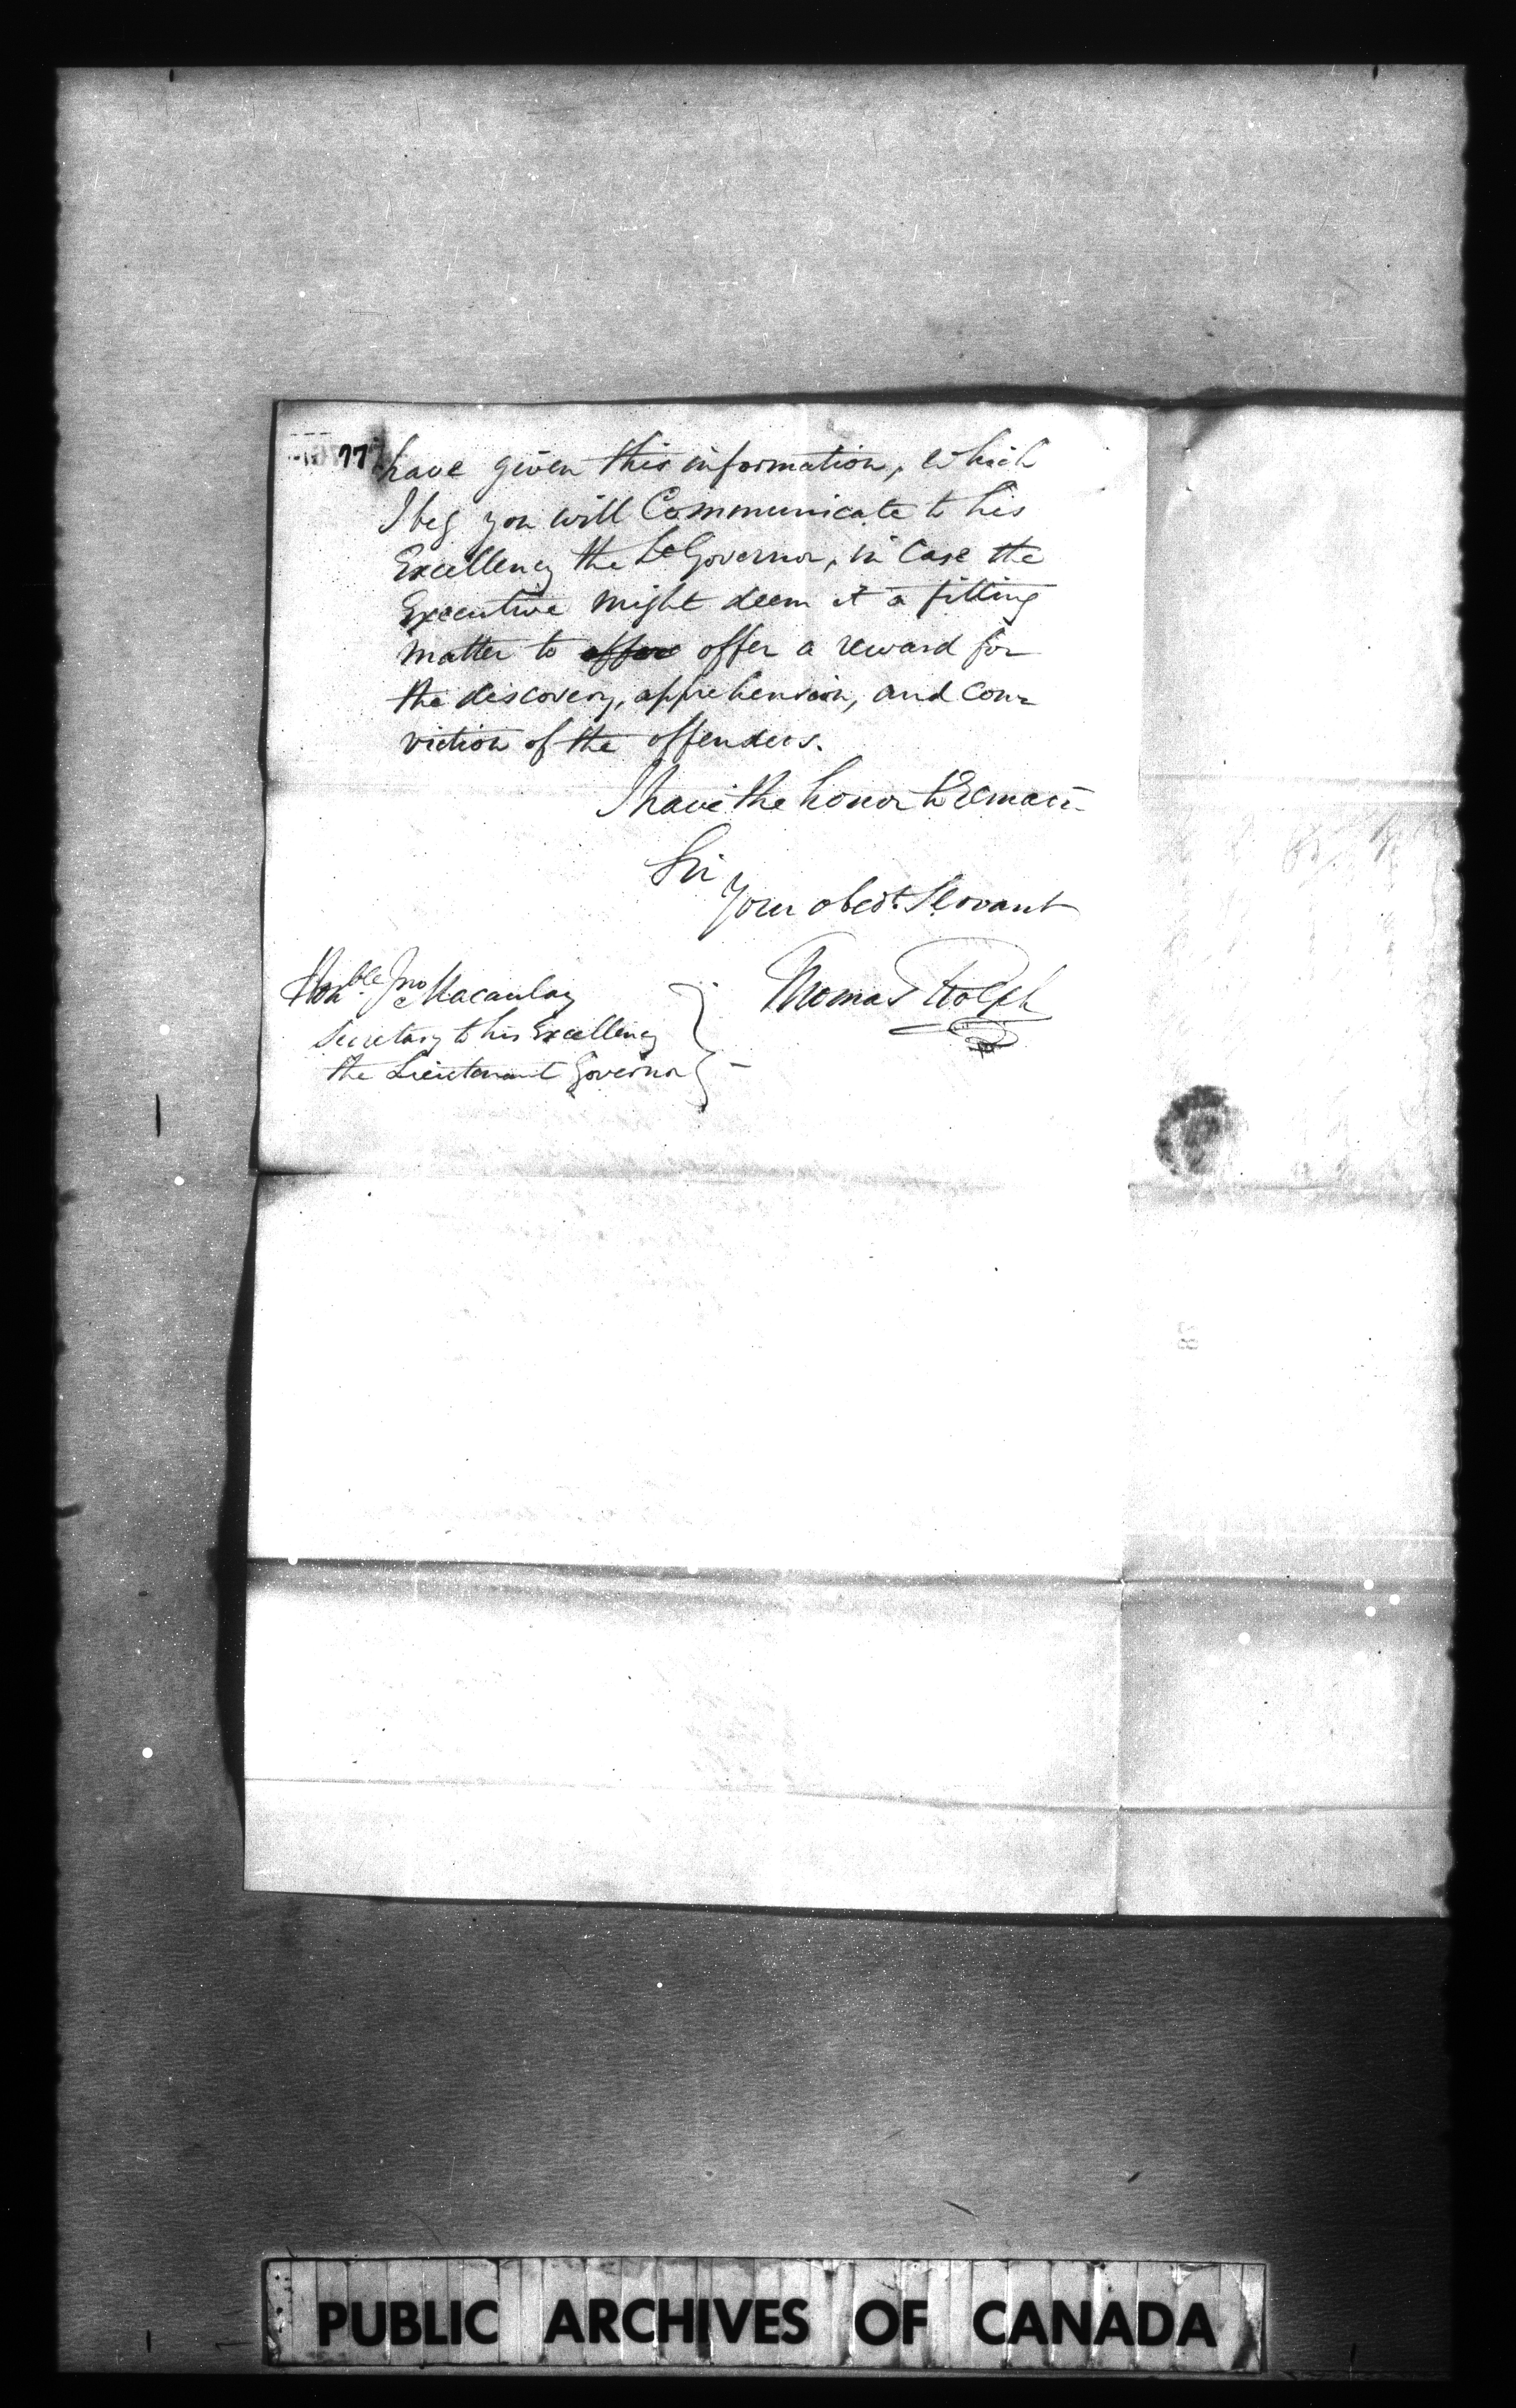 77
have given this information, which
I beg you will Communicate to his
Excellency the Lt Governor, in Case the
Executive might deem it a fitting
matter to offer a reward for
the discovery, apprehension, and con=
viction of the offenders.
I have the honor to Remain
Sir
Your obedt. Servant
Thomas Rolph
Honble. Jno Macaulay
Secretary to his Excellency
the Lieutenant Governor
PUBLIC ARCHIVES OF CANADA